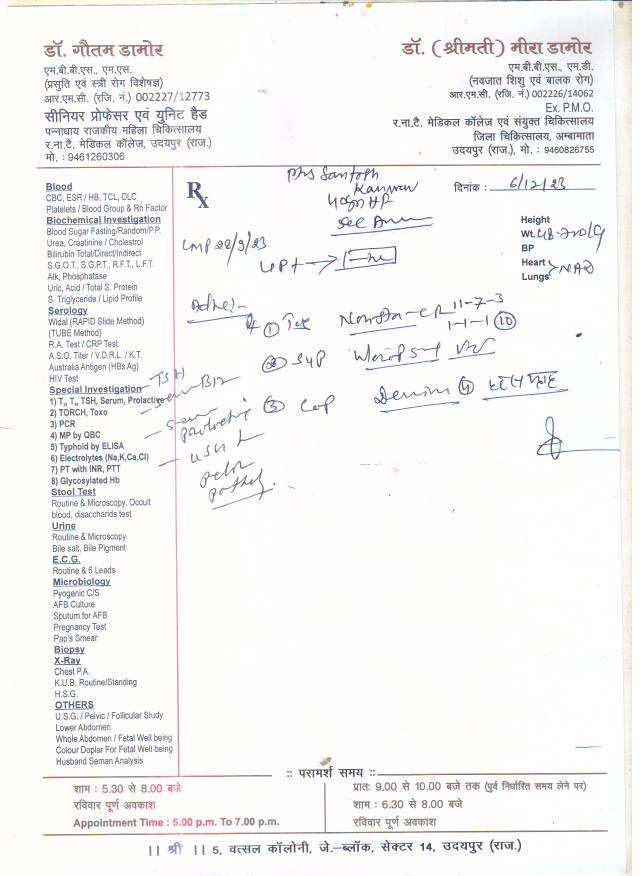 डॉ. गौतम डामोर
एम.बी.बी.एस., एम.एस.
(प्रसुति एवं स्त्री रोग विशेषज्ञ)
आर.एम.सी. (रजि. नं.) 002227/12773
सीनियर प्रोफेसर एवं युनिट हैड
पन्नाधाय राजकीय महिला चिकित्सालय
र.ना.टै. मेडिकल कॉलेज, उदयपुर (राज.)
मो. : 9461260306
डॉ. (श्रीमती) मीरा डामोर
एम.बी.बी.एस., एम.डी.
(नवजात शिशु एवं बालक रोग)
आर.एम.सी. (रजि. नं.) 002226/14062
Ex. P.M.O.
र.ना.टै. मेडिकल कॉलेज एवं संयुक्त चिकित्सालय
जिला चिकित्सालय, अम्बामाता
उदयपुर (राज.), मो. : 9460826755
Rx
Santosh
Kanwar
दिनांक : 6/12/23
LMP 28/9/23
UPT → -ve
Height
Wt.
BP
Heart
Lungs NAD
Adv:-
① Tab 11-7-3
1-1-1 (10)
② Syp
③ Cap
TSH
Serum B12
Serum
Prolactin
USG
Blood
CBC, ESR / HB, TCL, DLC
Platelets / Blood Group & Rh Factor
Biochemical Investigation
Blood Sugar Fasting/Random/P.P.
Urea, Creatinine / Cholestrol
Bilirubin Total/Direct/Indirect
S.G.O.T., S.G.P.T., R.F.T., L.F.T.
Alk, Phosphatase
Uric, Acid / Total S. Protein
S. Triglyceride / Lipid Profile
Serology
Widal (RAPID Slide Method)
(TUBE Method)
R.A. Test / CRP Test
A.S.O. Titer / V.D.R.L. / K.T.
Australia Antigen (HBs Ag)
HIV Test
Special Investigation
1) T₃, T₄, TSH, Serum, Prolactive
2) TORCH, Toxo
3) PCR
4) MP by QBC
5) Typhoid by ELISA
6) Electrolytes (Na,K,Ca,Cl)
7) PT with INR, PTT
8) Glycosylated Hb
Stool Test
Routine & Microscopy, Occult
blood, disaccharids test
Urine
Routine & Microscopy
Bile salt, Bile Pigment
E.C.G.
Routine & 6 Leads
Microbiology
Pyogenic C/S
AFB Culture
Sputum for AFB
Pregnancy Test
Pap's Smear
Biopsy
X-Ray
Chest P.A.
K.U.B. Routine/Standing
H.S.G.
OTHERS
U.S.G. / Pelvic / Follicular Study
Lower Abdomen
Whole Abdomen / Fetal Well being
Colour Doplar For Fetal Well being
Husband Seman Analysis
:: परामर्श समय ::
शाम : 5.30 से 8.00 बजे
रविवार पूर्ण अवकाश
Appointment Time : 5.00 p.m. To 7.00 p.m.
प्रातः 9.00 से 10.00 बजे तक (पुर्व निर्धारित समय लेने पर)
शाम : 6.30 से 8.00 बजे
रविवार पूर्ण अवकाश
|| श्री || 5, वत्सल कॉलोनी, जे.–ब्लॉक, सेक्टर 14, उदयपुर (राज.)